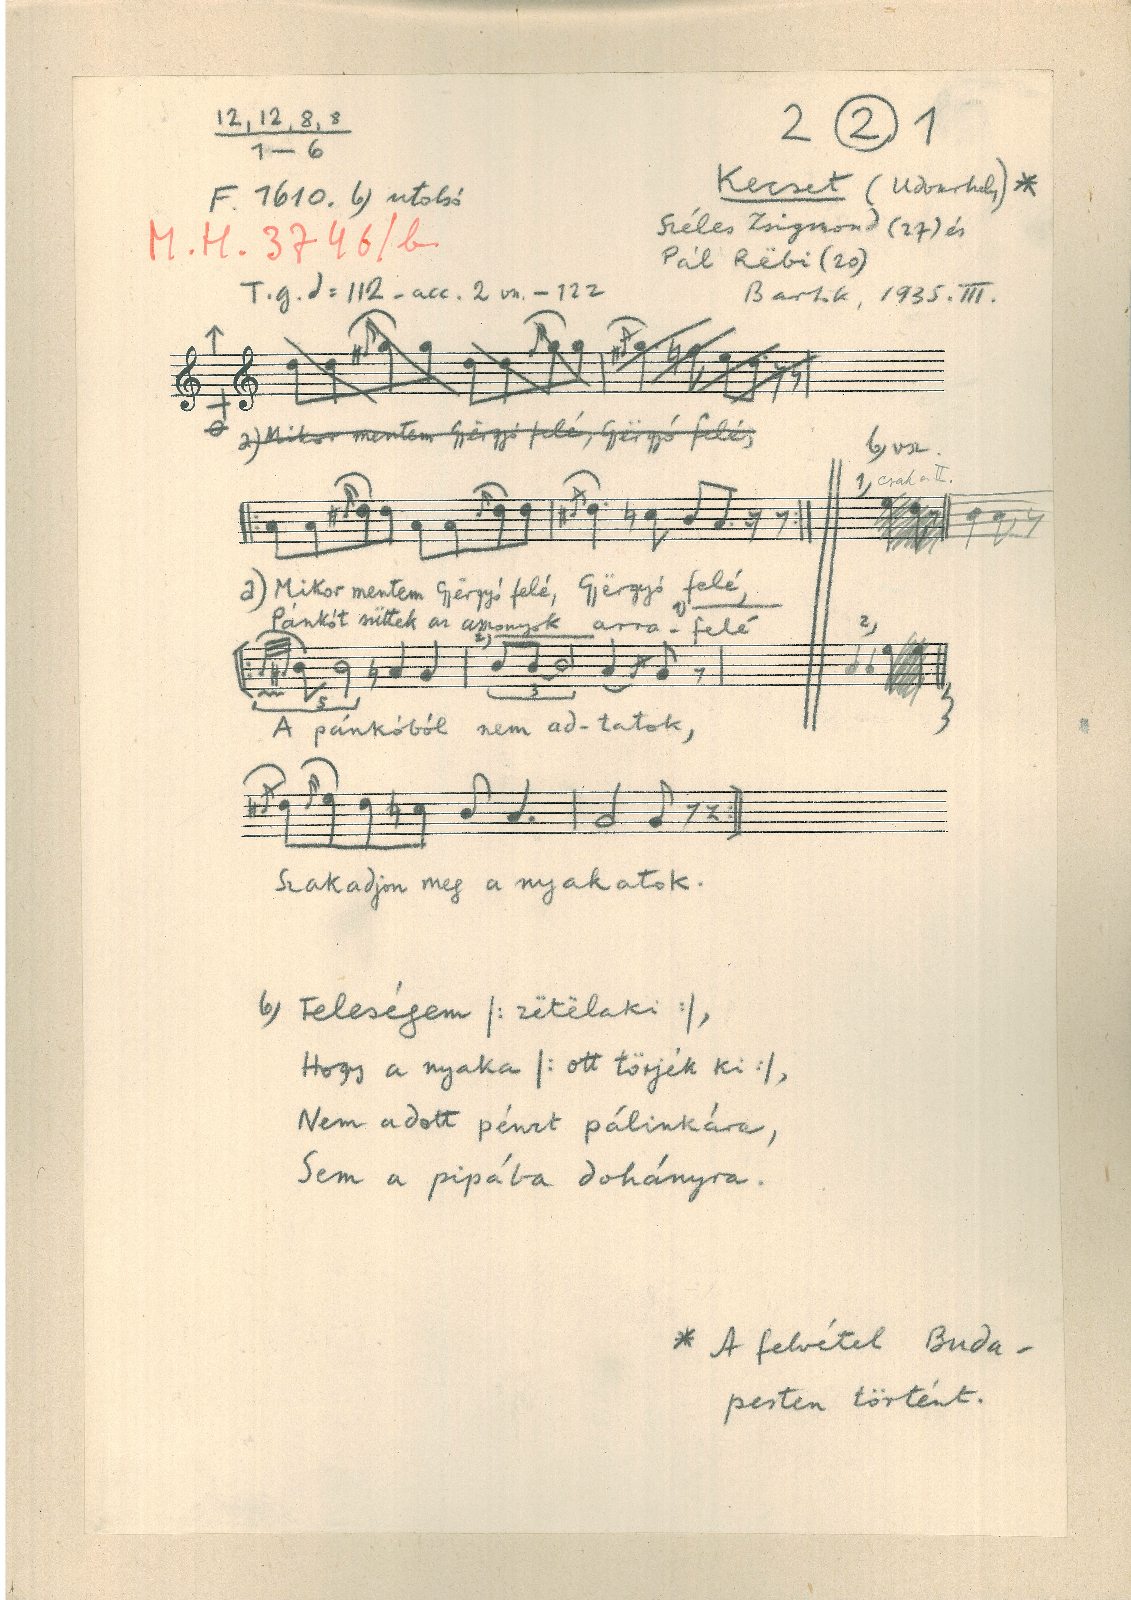 12, 12, 8, 8
1 — 6
2 2 1
F. 1610. b) utolsó
Kecset (Udvarhely) *
M.H. 3746/b
Széles Zsigmond (27) és
Pál Rëbi (20)
T.g. ♩= 112 - acc. 2 vsz. - 122
Bartók, 1935. III.
a) Mikor mentem Gjërgyó felé, Gjërgyó felé,
b) vsz.
1, csak a II.
a) Mikor mentem Gjërgyó felé, Gjërgyó felé,
Pánkót süttek az asszonyok arra-felé
1)
2)
2,
3
5
A pánkóból nem ad-tatok,
Szakadjon meg a nyakatok.
b) Feleségem |: zëtëlaki :|,
Hogy a nyaka |: ott törjék ki :|,
Nem adott pénzt pálinkára,
Sem a pipába dohányra.
* A felvétel Buda-
pesten történt.